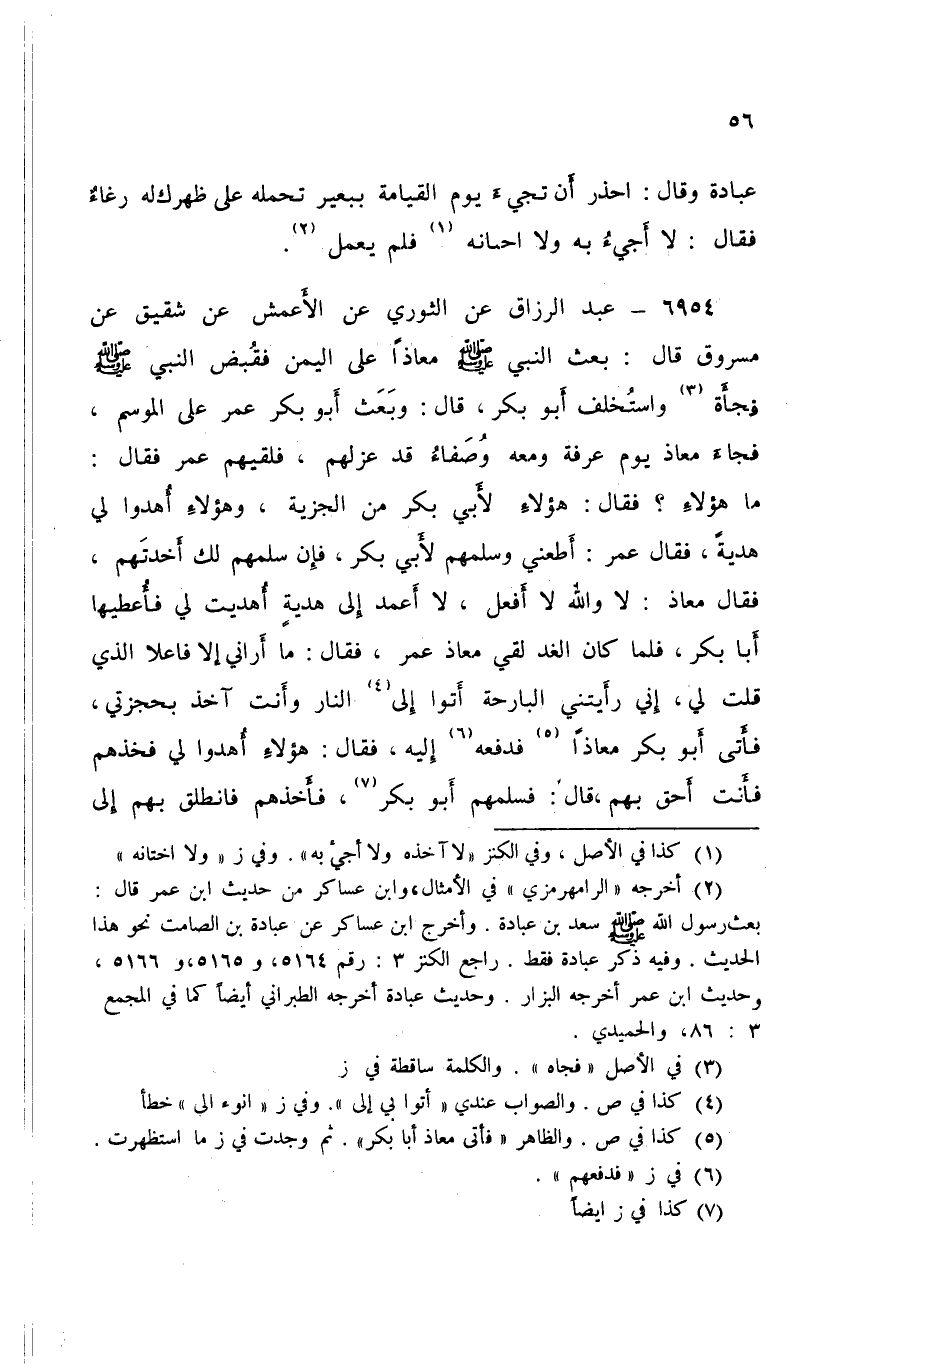 ٥٦
عبادة وقال : احذر أَن تجيء يوم القيامة ببعير تحمله على ظهرك له رغاءٌ
فقال : لا أَجيءُ به ولا احبانه (١) فلم يعمل (٢).
٦٩٥٤ – عبد الرزاق عن الثوري عن الأَعمش عن شقيق عن
مسروق قال : بعث النبي ﷺ معاذاً على اليمن فقُبض النبي ﷺ
فجأَة (٣) واستُخلف أَبو بكر ، قال : وبَعَث أَبو بكر عمر على الموسم ،
فجاء معاذ يوم عرفة ومعه وُصَفاءُ قد عزلهم ، فلقيهم عمر فقال :
ما هؤلاءِ ؟ فقال : هؤلاءِ لأَبي بكر من الجزية ، وهؤلاءِ أُهدوا لي
هديةً ، فقال عمر : أَطعني وسلمهم لأَبي بكر ، فإِن سلمهم لك أَخدتَهم ،
فقال معاذ : لا والله لا أَفعل ، لا أَعمد إِلى هديةٍ أُهديت لي فأُعطيها
أَبا بكر ، فلما كان الغد لقي معاذ عمر ، فقال : ما أَراني إِلا فاعلا الذي
قلت لي ، إِني رأَيتني البارحة أَتوا إِلى (٤) النار وأَنت آخذ بحجزتي ،
فأَتى أَبو بكر معاذاً (٥) فدفعه (٦) إِليه ، فقال : هؤلاءِ أُهدوا لي فخذهم
فأَنت أَحق بهم ، قال : فسلمهم أَبو بكر (٧) ، فأَخذهم فانطلق بهم إِلى
(١) كذا في الأصل ، وفي الكنز «لا آخذه ولا أجيء به» . وفي ز « ولا اختانه »
(٢) أخرجه « الرامهرمزي » في الأمثال، وابن عساكر من حديث ابن عمر قال :
بعث رسول الله ﷺ سعد بن عبادة . وأخرج ابن عساكر عن عبادة بن الصامت نحو هذا
الحديث . وفيه ذكر عبادة فقط . راجع الكنز ٣ : رقم ٥١٦٤، و ٥١٦٥،و ٥١٦٦ ،
وحديث ابن عمر أخرجه البزار . وحديث عبادة أخرجه الطبراني أيضاً كما في المجمع
٣ : ٨٦، والحميدي .
(٣) في الأصل « فجاه » . والكلمة ساقطة في ز
(٤) كذا في ص . والصواب عندي « أتوا بي إلى ». وفي ز « انوء الى » خطأ
(٥) كذا في ص . والظاهر « فأتى معاذ أبا بكر» . ثم وجدت في ز ما استظهرت .
(٦) في ز « فدفعهم » .
(٧) كذا في ز ايضاً